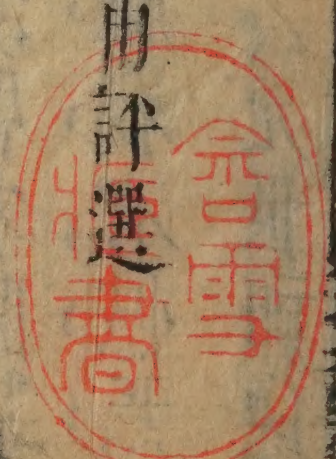 評選
含雪
書